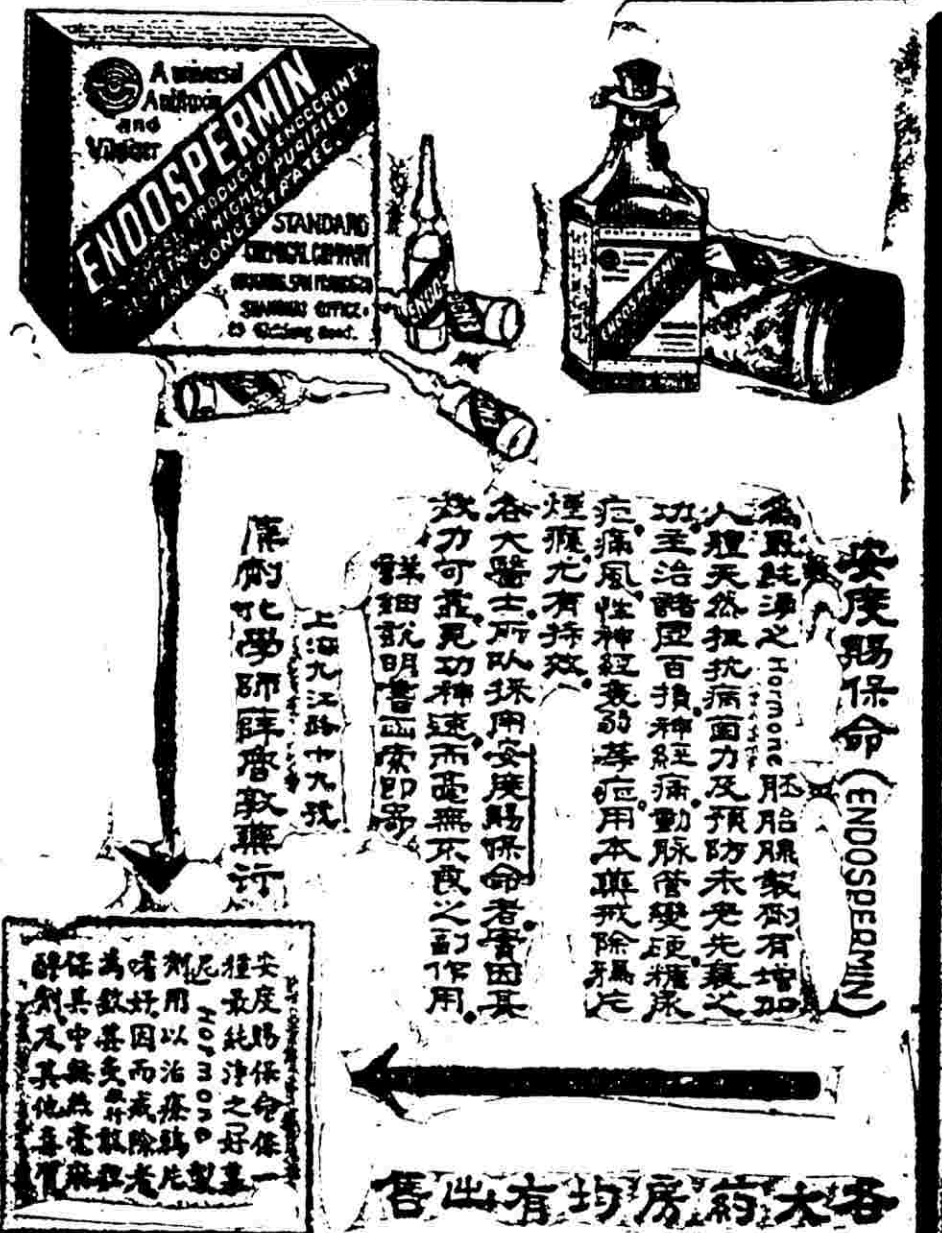 A universal
Antitoxin
and
Vitalizer
ENDOSPERMIN
PRODUCT OF ENDOCRINE
HIGHLY PURIFIED
AND CONCENTRATED
STANDARD
CHEMICAL COMPANY
SHANGHAI OFFICE:
ENDOSPERMIN
安度賜保命 (ENDOSPERMIN)
為最純淨之 Hormone 胚胎腺製劑有增加
人體天然抵抗病菌力及預防未老先衰之
功主治諸虛百損神經痛動脈管變硬糖尿
症痛風性神經衰弱等症用本藥戒除鴉片
煙癮尤有特效
各大醫士所以採用安度賜保命者實因其
效力可靠見功神速而毫無不良之副作用
詳細說明書函索即寄
上海九江路廿九號
藥劑化學師薛齋敦藥行
安度賜保命係一
種最純淨之好蒙
尼 HORMONE 製
劑用以治療鴉片
嗜好因而戒除者
為數甚夥敢擔
保其中無絲毫麻
醉劑及其他毒質
各大藥房均有出售